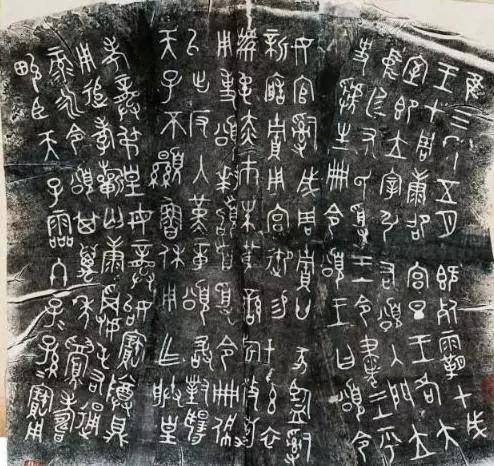 隹三年五月既死霸甲戌
王才周康卲宮旦王各大
室即立宰引右頌入門立
中廷尹氏受王令書王乎
史虢生冊令頌王曰頌令
女官𤔲成周貯廿家監𤔲
新造貯用宮御易女玄衣
黹屯赤巿朱黃鑾旂攸勒
用事頌拜稽首受令冊佩
以出反入堇章頌敢對揚
天子不顯魯休用乍朕皇
考龏弔皇母龏始寶尊鼎
用追孝祈匄康𩛥屯右通
彔永令頌其萬年眉壽
畯臣天子霝冬子子孫孫寶用